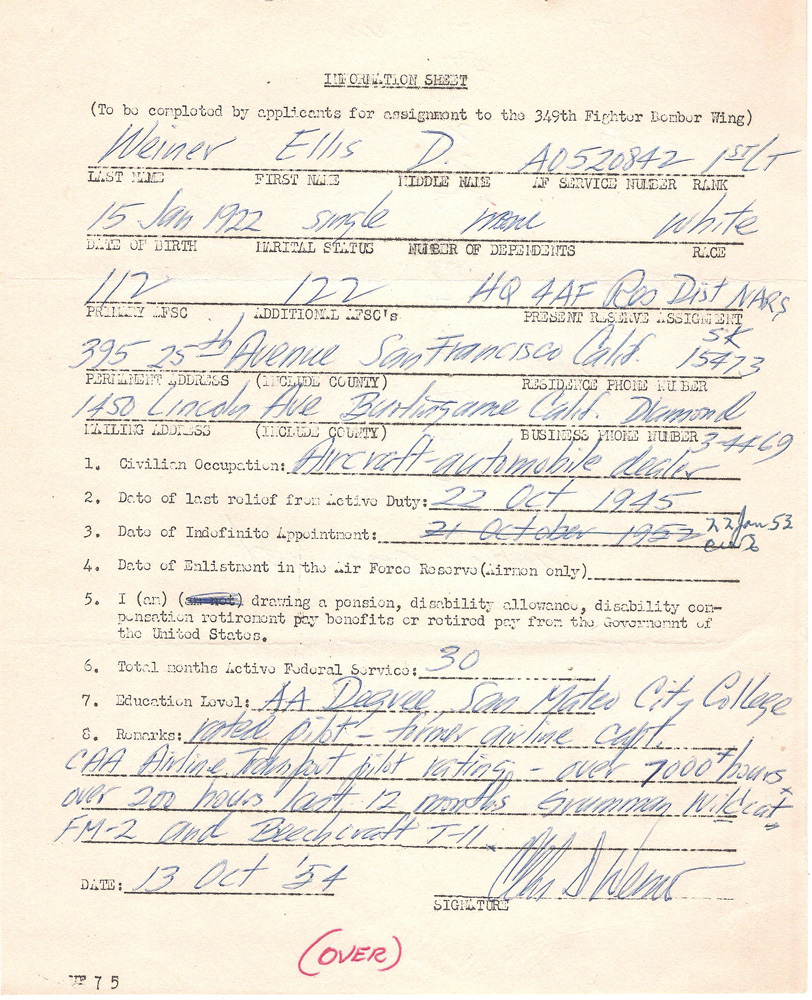 INFORMATION SHEET
(To be completed by applicants for assignment to the 349th Fighter Bomber Wing)
Weiner Ellis D. AO520842 1ST/LT
LAST NAME FIRST NAME MIDDLE NAME AF SERVICE NUMBER RANK
15 Jan 1922 single none white
DATE OF BIRTH MARITAL STATUS NUMBER OF DEPENDENTS RACE
112 122 HQ 4AF Res Dist NARS
PRIMARY AFSC ADDITIONAL AFSC's PRESENT RESERVE ASSIGNMENT
SK
395 25th Avenue San Francisco Calif. 15473
PERMANENT ADDRESS (INCLUDE COUNTY) RESIDENCE PHONE NUMBER
1450 Lincoln Ave Burlingame Calif. Diamond
MAILING ADDRESS (INCLUDE COUNTY) BUSINESS PHONE NUMBER 3-4469
1. Civilian Occupation: Aircraft-automobile dealer
2. Date of last relief from Active Duty: 22 Oct 1945
3. Date of Indefinite Appointment: 21 October 1952 22 Jan 53
4. Date of Enlistment in the Air Force Reserve(Airmen only)
5. I (am) (am not) drawing a pension, disability allowance, disability com-
pensation retirement pay benefits or retired pay from the Government of
the United States.
6. Total months Active Federal Service: 30
7. Education Level: AA Degree San Mateo City College
8. Remarks: rated pilot - former airline capt.
CAA Airline Transport pilot rating - over 7000+ hours
over 200 hours last 12 months Grumman Wildcat
FM-2 and Beechcraft T-11.
DATE: 13 Oct '54 Ellis D Weiner
SIGNATURE
(OVER)
75